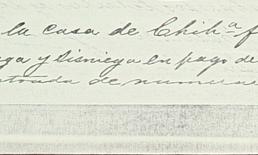 la casa de Chih.ª f
ga y Lisniega en pago de
ntrada de numera